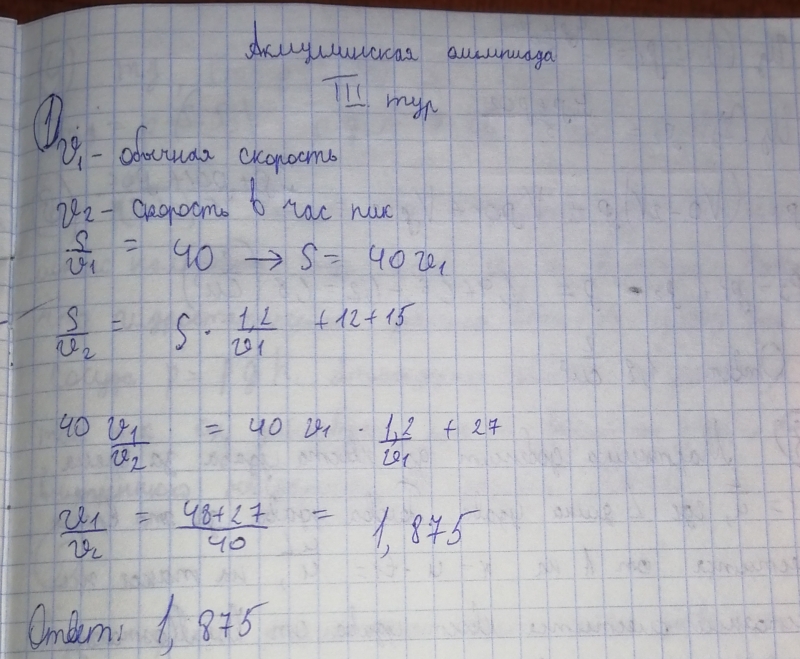 Акмуллинская олимпиада
III тур
1
v₁ - обычная скорость
v₂ - скорость в час пик
S/v₁ = 40 → S = 40 v₁
S/v₂ = S · 1,2/v₁ + 12 + 15
40 v₁/v₂ = 40 v₁ · 1,2/v₁ + 27
v₁/v₂ = (48+27)/40 = 1,875
Ответ: 1,875